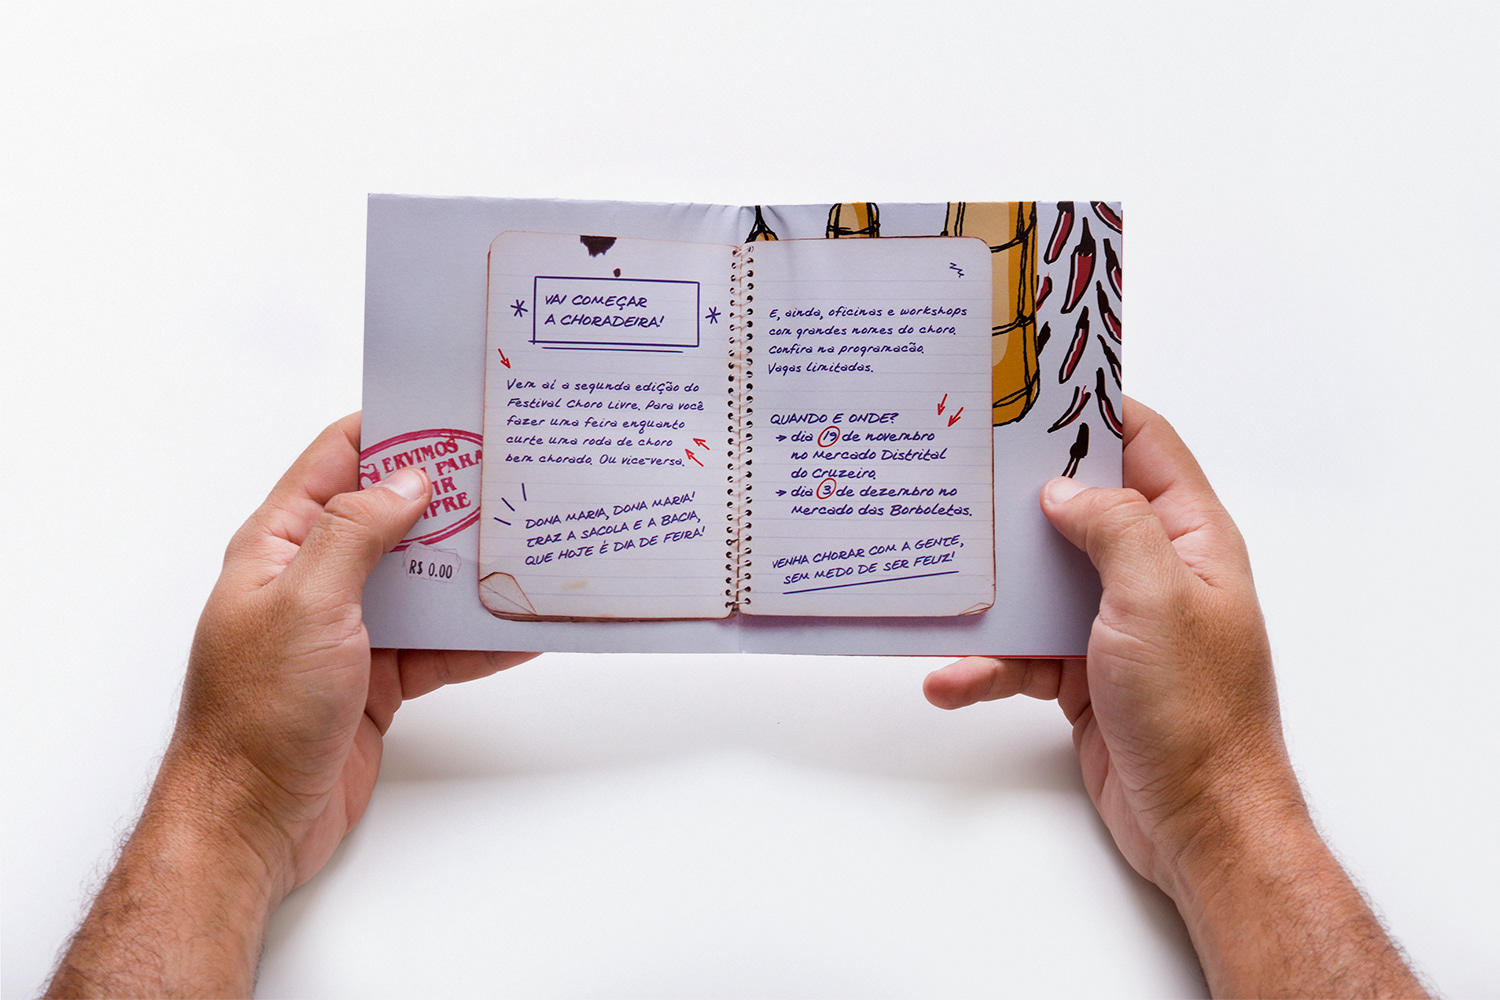 VAI COMEÇAR
A CHORADEIRA!
Vem aí a segunda edição do
Festival Choro Livre. Para você
fazer uma feira enquanto
curte uma roda de choro
bem chorado. Ou vice-versa.
DONA MARIA, DONA MARIA!
TRAZ A SACOLA E A BACIA,
QUE HOJE É DIA DE FEIRA!
E, ainda, oficinas e workshops
com grandes nomes do choro.
Confira na programacão.
Vagas limitadas.
QUANDO E ONDE?
→ dia 19 de novembro
no Mercado Distrital
do Cruzeiro.
→ dia 3 de dezembro no
Mercado das Borboletas.
VENHA CHORAR COM A GENTE,
SEM MEDO DE SER FELIZ!
ERVIMOS
PARA
IR
MPRE
R$ 0.00